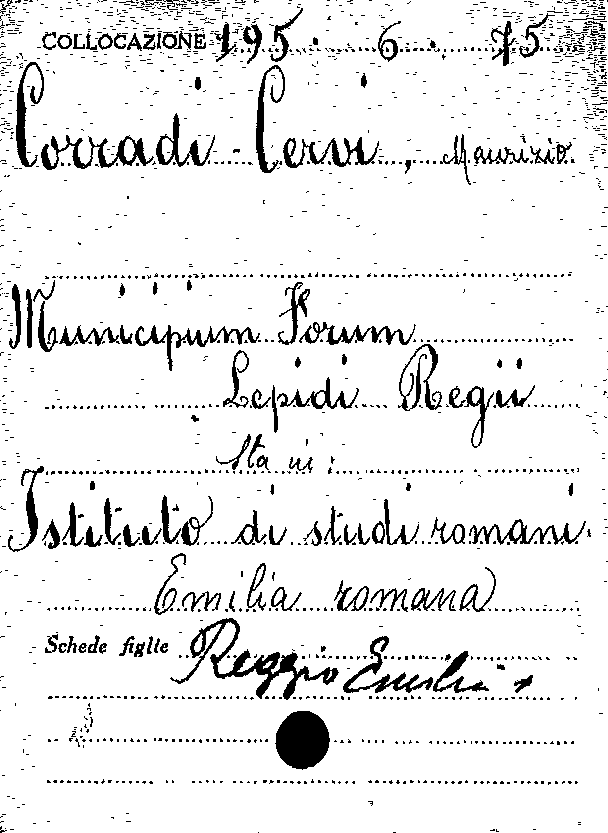 COLLOCAZIONE 195. 6. 75
Corradi - Cervi, Maurizio.
Municipium Forum
Lepidi Regii
Sta in:
Istituto di studi romani.
Emilia romana
Schede figlie Reggio Emilia +